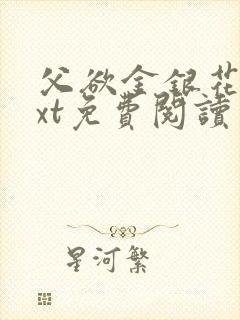 父欲金银花
xt免費閱讀
星河繁